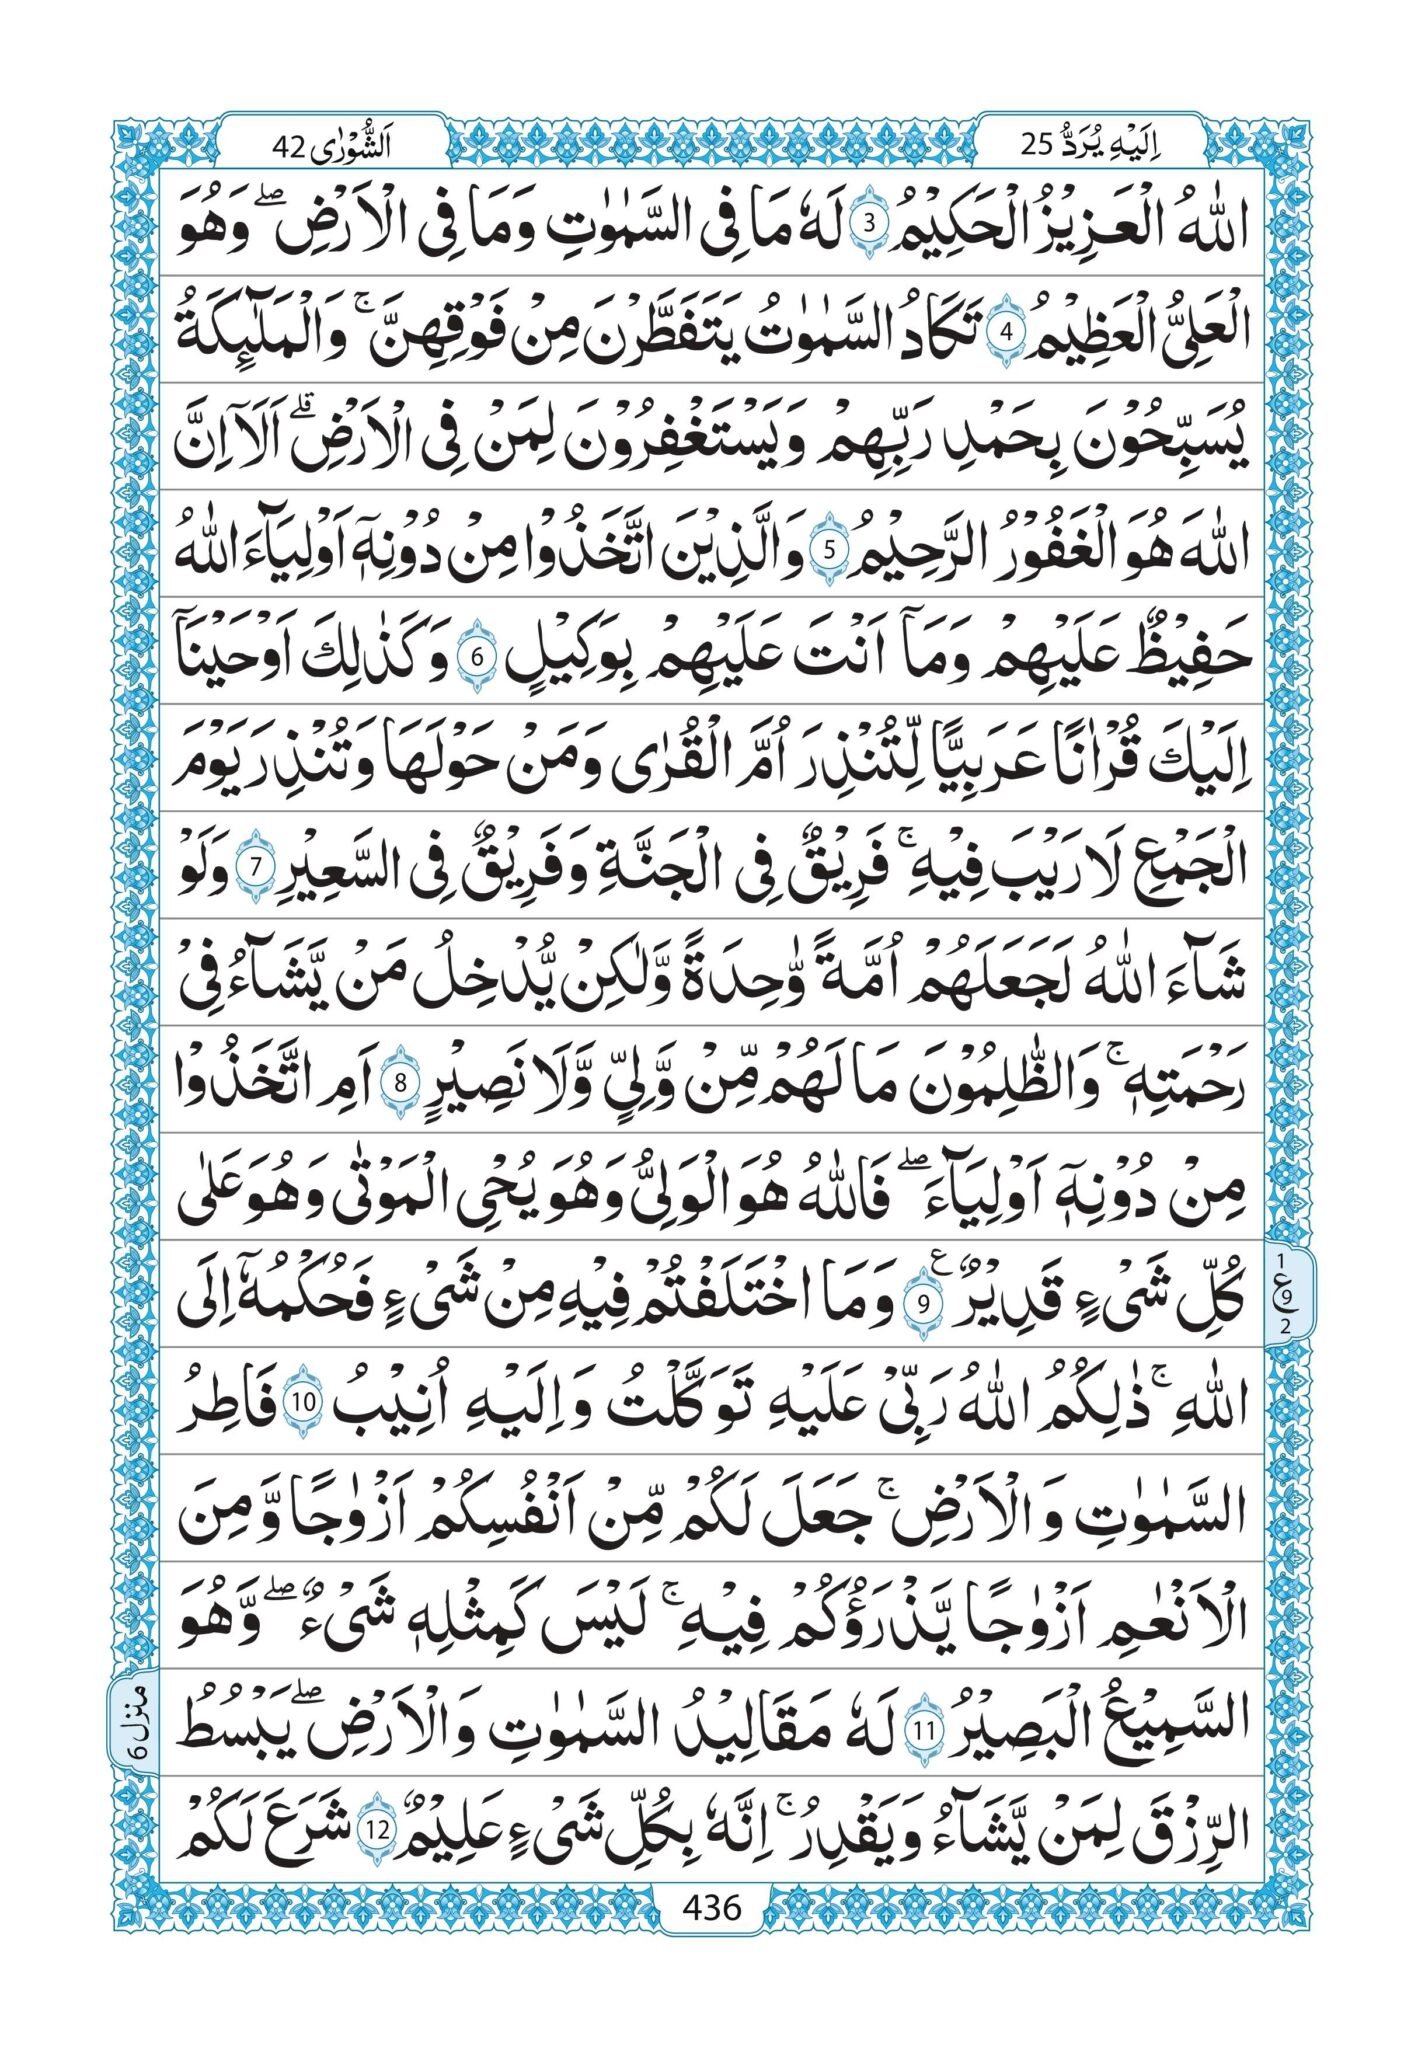 اِلَيْهِ يُرَدُّ 25
اَلشُّوْرٰى 42
اللّٰهُ الْعَزِيْزُ الْحَكِيْمُ 3 لَهٗ مَا فِى السَّمٰوٰتِ وَمَا فِى الْاَرْضِ ۖ وَهُوَ
الْعَلِىُّ الْعَظِيْمُ 4 تَكَادُ السَّمٰوٰتُ يَتَفَطَّرْنَ مِنْ فَوْقِهِنَّ ۚ وَالْمَلٰٓئِكَةُ
يُسَبِّحُوْنَ بِحَمْدِ رَبِّهِمْ وَيَسْتَغْفِرُوْنَ لِمَنْ فِى الْاَرْضِ ۗ اَلَآ اِنَّ
اللّٰهَ هُوَ الْغَفُوْرُ الرَّحِيْمُ 5 وَالَّذِيْنَ اتَّخَذُوْا مِنْ دُوْنِهٖٓ اَوْلِيَآءَ اللّٰهُ
حَفِيْظٌ عَلَيْهِمْ وَمَآ اَنْتَ عَلَيْهِمْ بِوَكِيْلٍ 6 وَكَذٰلِكَ اَوْحَيْنَآ
اِلَيْكَ قُرْاٰنًا عَرَبِيًّا لِّتُنْذِرَ اُمَّ الْقُرٰى وَمَنْ حَوْلَهَا وَتُنْذِرَ يَوْمَ
الْجَمْعِ لَا رَيْبَ فِيْهِ ۚ فَرِيْقٌ فِى الْجَنَّةِ وَفَرِيْقٌ فِى السَّعِيْرِ 7 وَلَوْ
شَآءَ اللّٰهُ لَجَعَلَهُمْ اُمَّةً وّٰحِدَةً وَّلٰكِنْ يُّدْخِلُ مَنْ يَّشَآءُ فِىْ
رَحْمَتِهٖ ۚ وَالظّٰلِمُوْنَ مَا لَهُمْ مِّنْ وَّلِيٍّ وَّلَا نَصِيْرٍ 8 اَمِ اتَّخَذُوْا
مِنْ دُوْنِهٖٓ اَوْلِيَآءَ ۖ فَاللّٰهُ هُوَ الْوَلِىُّ وَهُوَ يُحْىِ الْمَوْتٰى وَهُوَ عَلٰى
كُلِّ شَىْءٍ قَدِيْرٌ 9 ع وَمَا اخْتَلَفْتُمْ فِيْهِ مِنْ شَىْءٍ فَحُكْمُهٗٓ اِلَى
1
ع
9
2
اللّٰهِ ۚ ذٰلِكُمُ اللّٰهُ رَبِّىْ عَلَيْهِ تَوَكَّلْتُ وَاِلَيْهِ اُنِيْبُ 10 فَاطِرُ
السَّمٰوٰتِ وَالْاَرْضِ ۚ جَعَلَ لَكُمْ مِّنْ اَنْفُسِكُمْ اَزْوٰجًا وَّمِنَ
الْاَنْعٰمِ اَزْوٰجًا يَّذْرَؤُكُمْ فِيْهِ ۚ لَيْسَ كَمِثْلِهٖ شَىْءٌ ۖ وَّهُوَ
السَّمِيْعُ الْبَصِيْرُ 11 لَهٗ مَقَالِيْدُ السَّمٰوٰتِ وَالْاَرْضِ ۖ يَبْسُطُ
منزل 6
الرِّزْقَ لِمَنْ يَّشَآءُ وَيَقْدِرُ ۚ اِنَّهٗ بِكُلِّ شَىْءٍ عَلِيْمٌ 12 شَرَعَ لَكُمْ
436